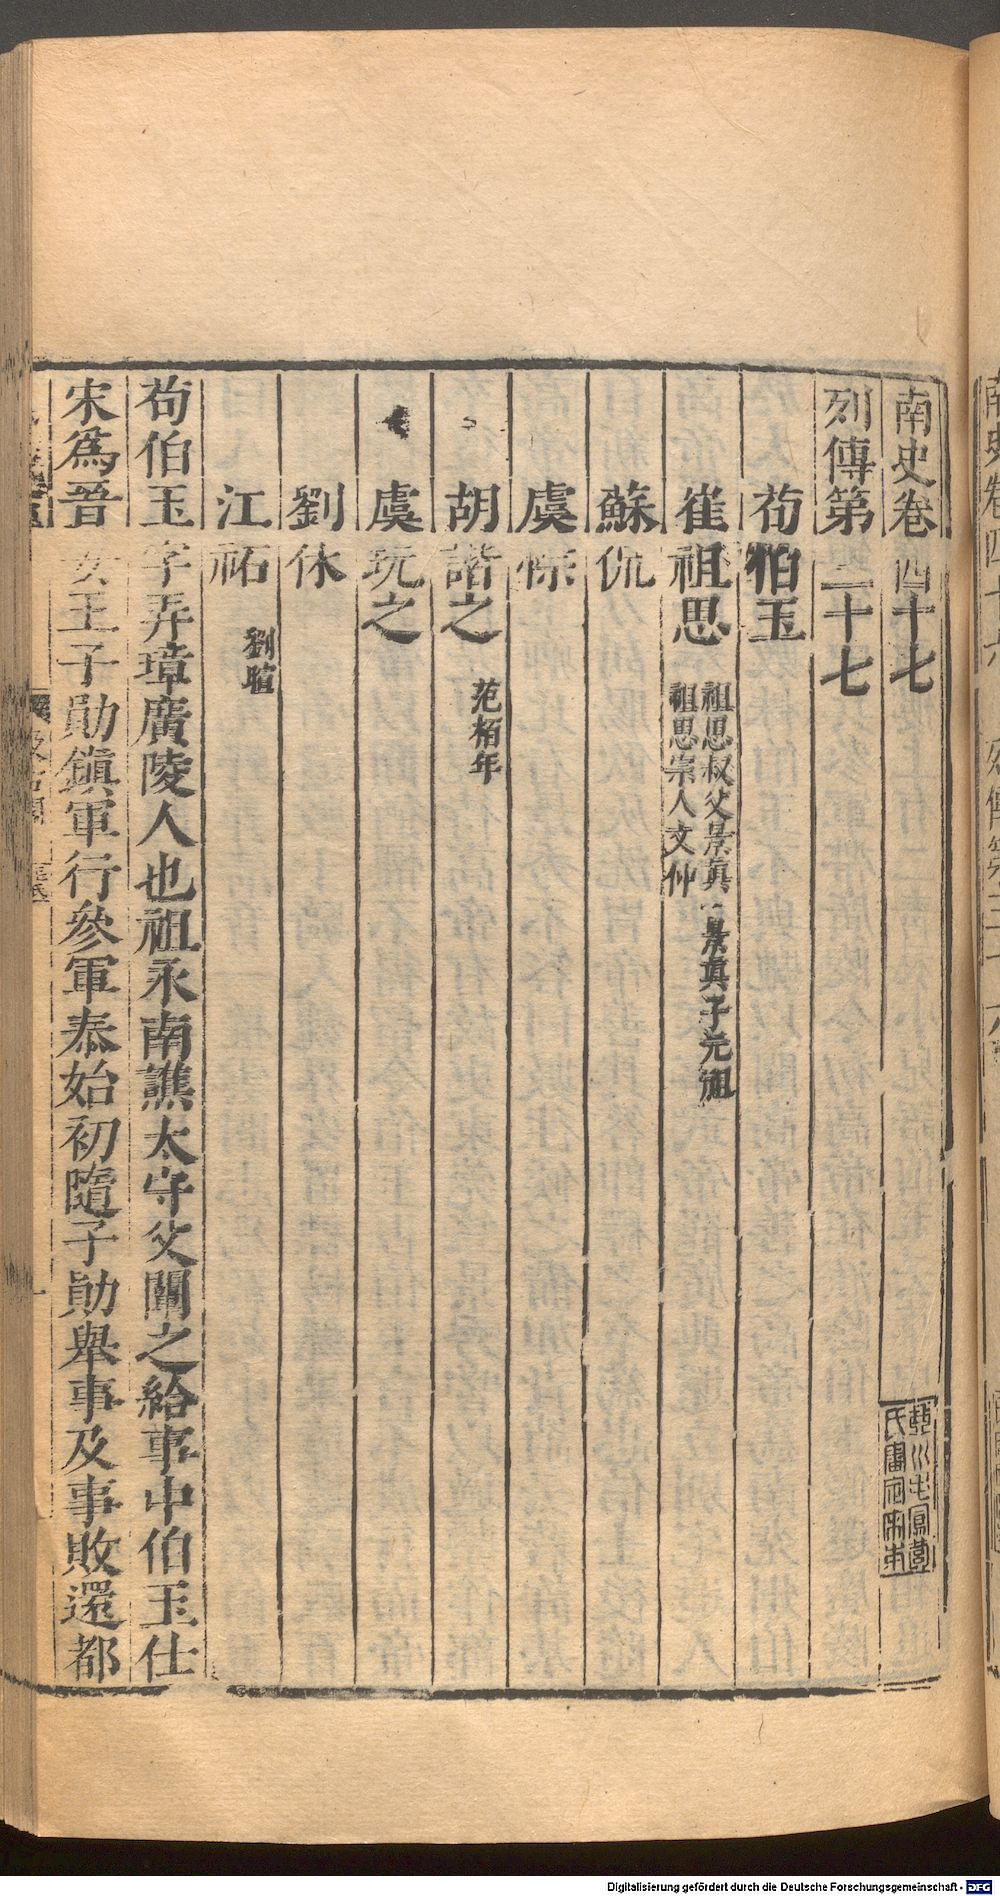 南史卷四十七
列傳第三十七
荀伯玉
崔祖思 祖思叔父景真 景真子元祖
祖思宗人文仲
蘇侃
虞悰
胡諧之 范栢年
虞玩之
劉休
江祏 劉暄
荀伯玉字弄璋廣陵人也祖永南譙太守父闡之給事中伯玉仕
宋爲晉安王子勛鎮軍行參軍泰始初隨子勛舉事及事敗還都
Digitalisierung gefördert durch die Deutsche Forschungsgemeinschaft - DFG